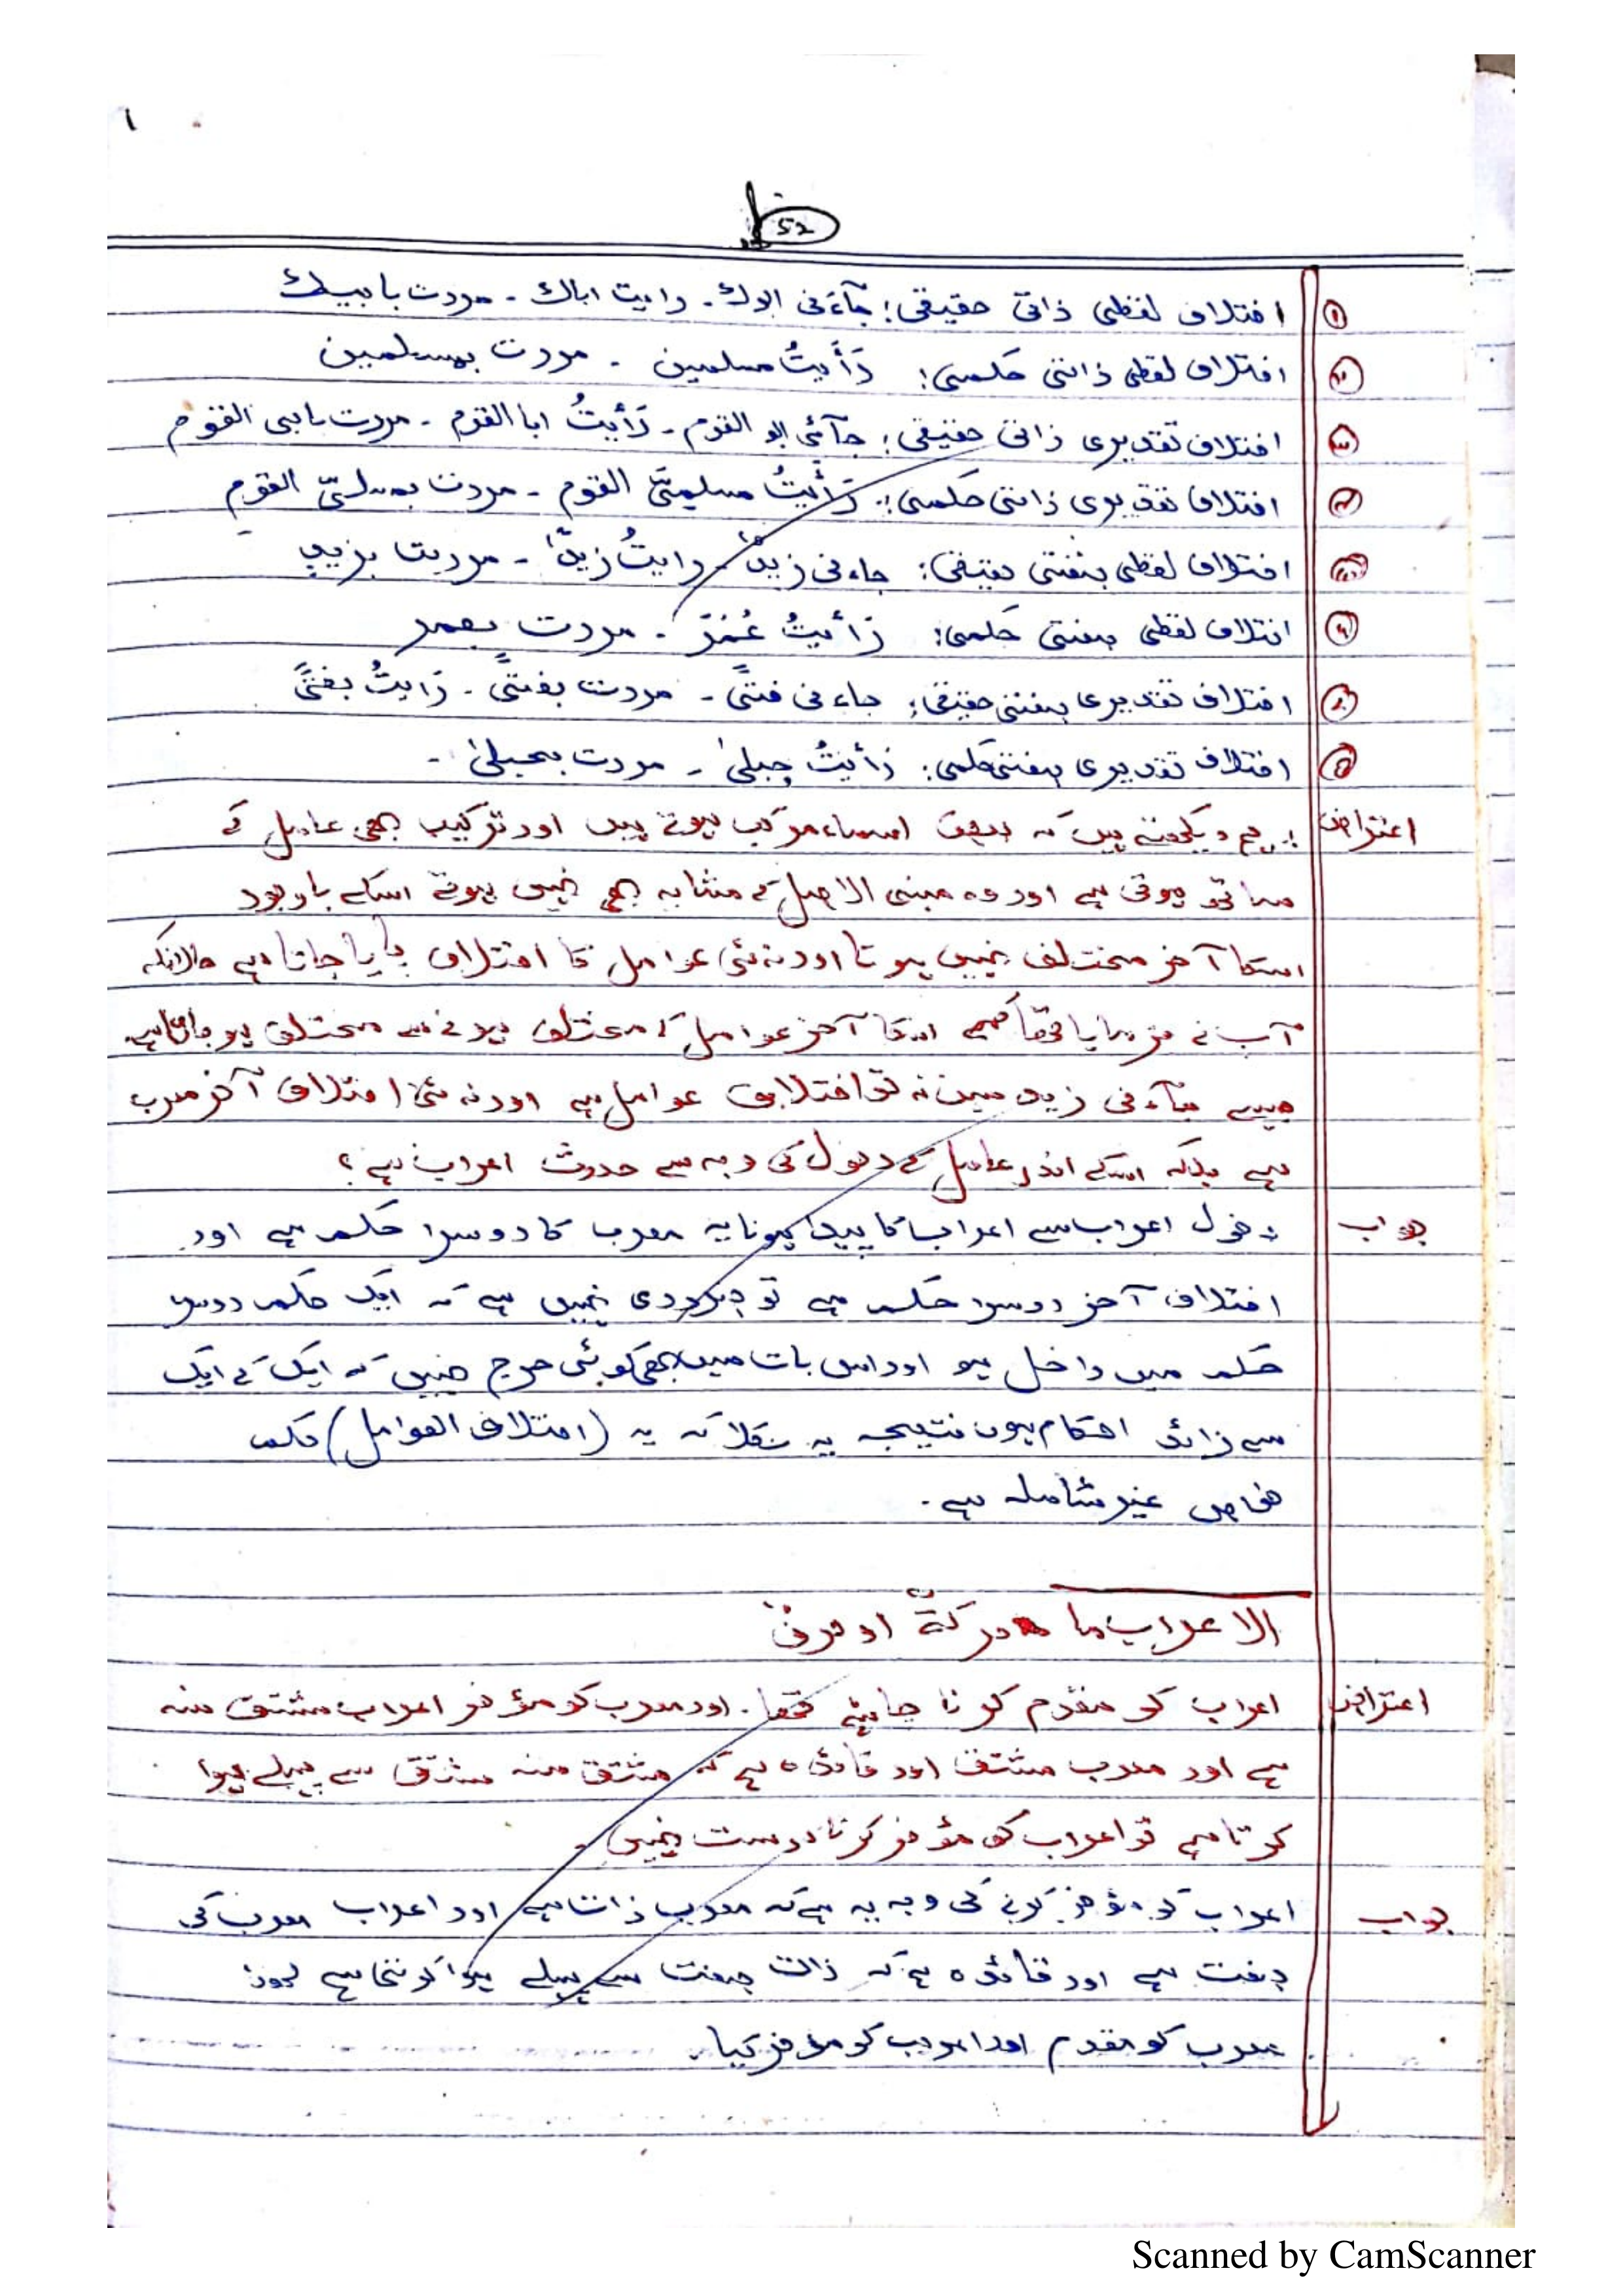 ۱
52
① اختلاف لفظی ذاتی حقیقی: جآءنی ابوک۔ رایت اباک۔ مررت بابیک
② اختلاف لفظی ذاتی حکمی: رَأَیتُ مسلمین ۔ مررت بمسلمین
③ اختلاف تقدیری ذاتی حقیقی: جآئنی ابو القوم۔ رَأیتُ ابا القوم ۔ مررت بابی القوم
④ اختلاف تقدیری ذاتی حکمی: رَأیتُ مسلمیّ القوم ۔ مررت بمسلمیّ القوم
⑤ اختلاف لفظی صفتی حقیقی: جاءنی زیدٌ ۔ رایتُ زیداً ۔ مررت بزیدٍ
⑥ اختلاف لفظی صفتی حکمی: رَأیتُ عُمَرَ ۔ مررت بعمر
⑦ اختلاف تقدیری صفتی حقیقی: جاءنی فتیً ۔ مررت بفتیً ۔ رَایتُ بفتیً
⑧ اختلاف تقدیری صفتی حکمی: رَأیتُ حبلیٰ ۔ مررت بحبلیٰ ۔
اعتراض : ہم دیکھتے ہیں کہ بعض اسماء مرکب ہوتے ہیں اور ترکیب بھی عامل کے
ساتھ ہوتی ہے اور وہ مبنی الاصل کے مشابہ بھی نہیں ہوتے اسکے باوجود
اسکا آخر مختلف نہیں ہوتا اور نہ ہی عوامل کا اختلاف پایا جاتا ہے حالانکہ
آپ نے فرمایا تھا کہ اسکا آخر عوامل کے مختلف ہونے سے مختلف ہو جاتا ہے
جیسے جآءنی زید میں نہ تو اختلاف عوامل ہے اور نہ ہی اختلاف آخر معرب
ہے بلکہ اسکے اندر عامل کے دخول کی وجہ سے حدوث اعراب ہے؟
جواب دخول اعراب سے اعراب کا پیدا ہونا یہ معرب کا دوسرا حکم ہے اور
اختلاف آخر دوسرا حکم ہے تو ضروری نہیں ہے کہ ایک حکم دوسرے
حکم میں داخل ہو اور اس بات میں بھی کوئی حرج نہیں کہ ایک کے ایک
سے زائد احکام ہوں نتیجہ یہ نکلا کہ یہ (اختلاف العوامل) حکم
خاص غیر شاملہ ہے۔
الاعراب ما حرکةٌ او حرفٌ
اعتراض اعراب کو مقدم کرنا چاہئے تھا۔ اور معرب کو مؤخر اعراب مشتق منہ
ہے اور معرب مشتق اور قائدہ ہے کہ مشتق منہ مشتق سے پہلے ہوا
کرتا ہے تو اعراب کو مؤخر کرنا درست نہیں۔
جواب اعراب کو مؤخر کرنے کی وجہ یہ ہے کہ معرب ذات ہے اور اعراب معرب کی
صفت ہے اور قائدہ ہے کہ ذات صفت سے پہلے ہوا کرتا ہے لہذا
معرب کو مقدم اور اعراب کو مؤخر کیا۔
Scanned by CamScanner